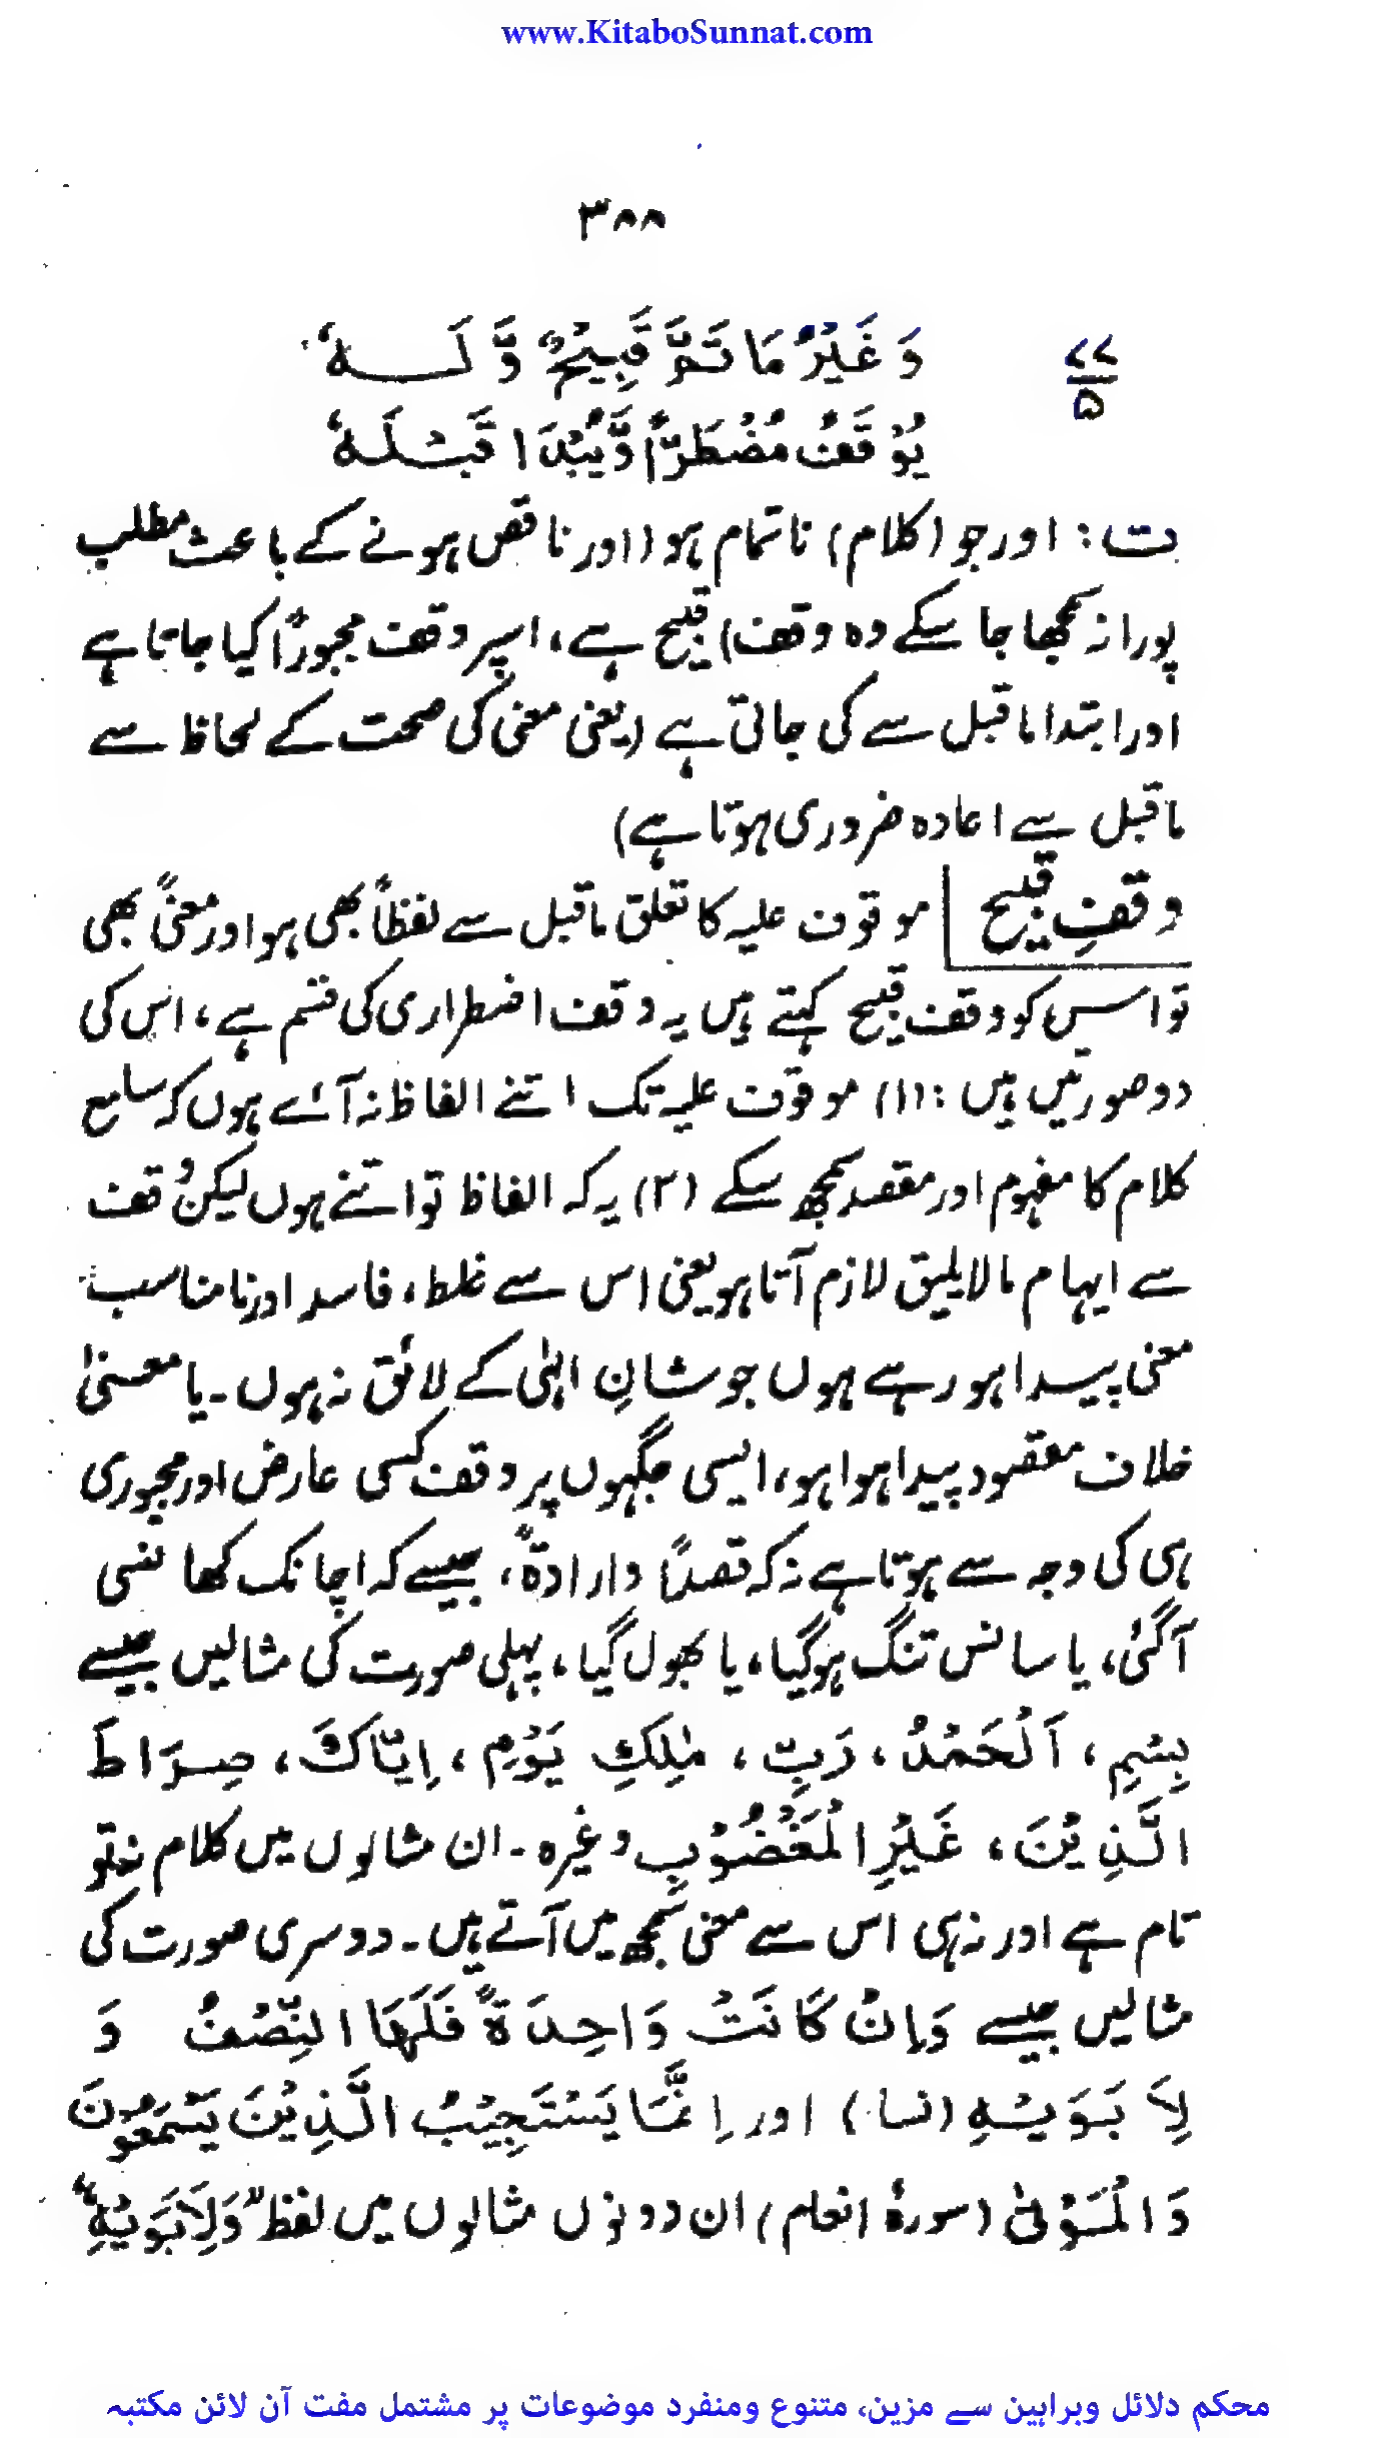 www.KitaboSunnat.com
۳۸۸
۷۷
۵
وَغَيْرُ مَا تَمَّ قَبِيْحٌ وَّلَهٗ
يُوْقَفُ مُضْطَرًّا وَّيُبْدَا قَبْلَهٗ
ت: اور جو (کلام) ناتمام ہو (اور ناقص ہونے کے باعث مطلب
پورا نہ سمجھا جا سکے وہ وقف) قبیح ہے، اسپر وقف مجبوراً کیا جاتا ہے
اور ابتدا ماقبل سے کی جاتی ہے (یعنی معنی کی صحت کے لحاظ سے
ماقبل سے اعادہ ضروری ہوتا ہے)
وقفِ قبیح موقوف علیہ کا تعلق ماقبل سے لفظاً بھی ہو اور معنیً بھی
تو اس کو وقف قبیح کہتے ہیں یہ وقف اضطراری کی قسم ہے، اس کی
دو صورتیں ہیں: (۱) موقوف علیہ تک اتنے الفاظ نہ آئے ہوں کہ سامع
کلام کا مفہوم اور مقصد سمجھ سکے (۲) یہ کہ الفاظ تو اتنے ہوں لیکن وقف
سے ایہام مالایلیق لازم آتا ہو یعنی اس سے غلط، فاسد اور نامناسب
معنی پیدا ہو رہے ہوں جو شانِ الٰہی کے لائق نہ ہوں۔ یا معنیٰ
خلاف مقصود پیدا ہوا ہو، ایسی جگہوں پر وقف کسی عارض اور مجبوری
ہی کی وجہ سے ہوتا ہے نہ کہ قصداً وارادۃً، جیسے کہ اچانک کھانسی
آگئی، یا سانس تنگ ہوگیا، یا بھول گیا، پہلی صورت کی مثالیں جیسے
بِسْمِ، اَلْحَمْدُ، رَبِّ، مٰلِكِ يَوْمِ، اِيَّاكَ، صِرَاطَ
الَّذِيْنَ، غَيْرِ الْمَغْضُوْبِ وغیرہ۔ ان مثالوں میں کلام نہ تو
تام ہے اور نہ ہی اس سے معنی سمجھ میں آتے ہیں۔ دوسری صورت کی
مثالیں جیسے وَاِنْ كَانَتْ وَاحِدَةً فَلَهَا النِّصْفُ وَ
لِاَبَوَيْهِ (نسا) اور اِنَّمَا يَسْتَجِيْبُ الَّذِيْنَ يَسْمَعُوْنَ
وَالْمَوْتٰى (سورۂ انعام) ان دونوں مثالوں میں لفظ "وَلِاَبَوَيْهِ"
محکم دلائل وبراہین سے مزین، متنوع ومنفرد موضوعات پر مشتمل مفت آن لائن مکتبہ